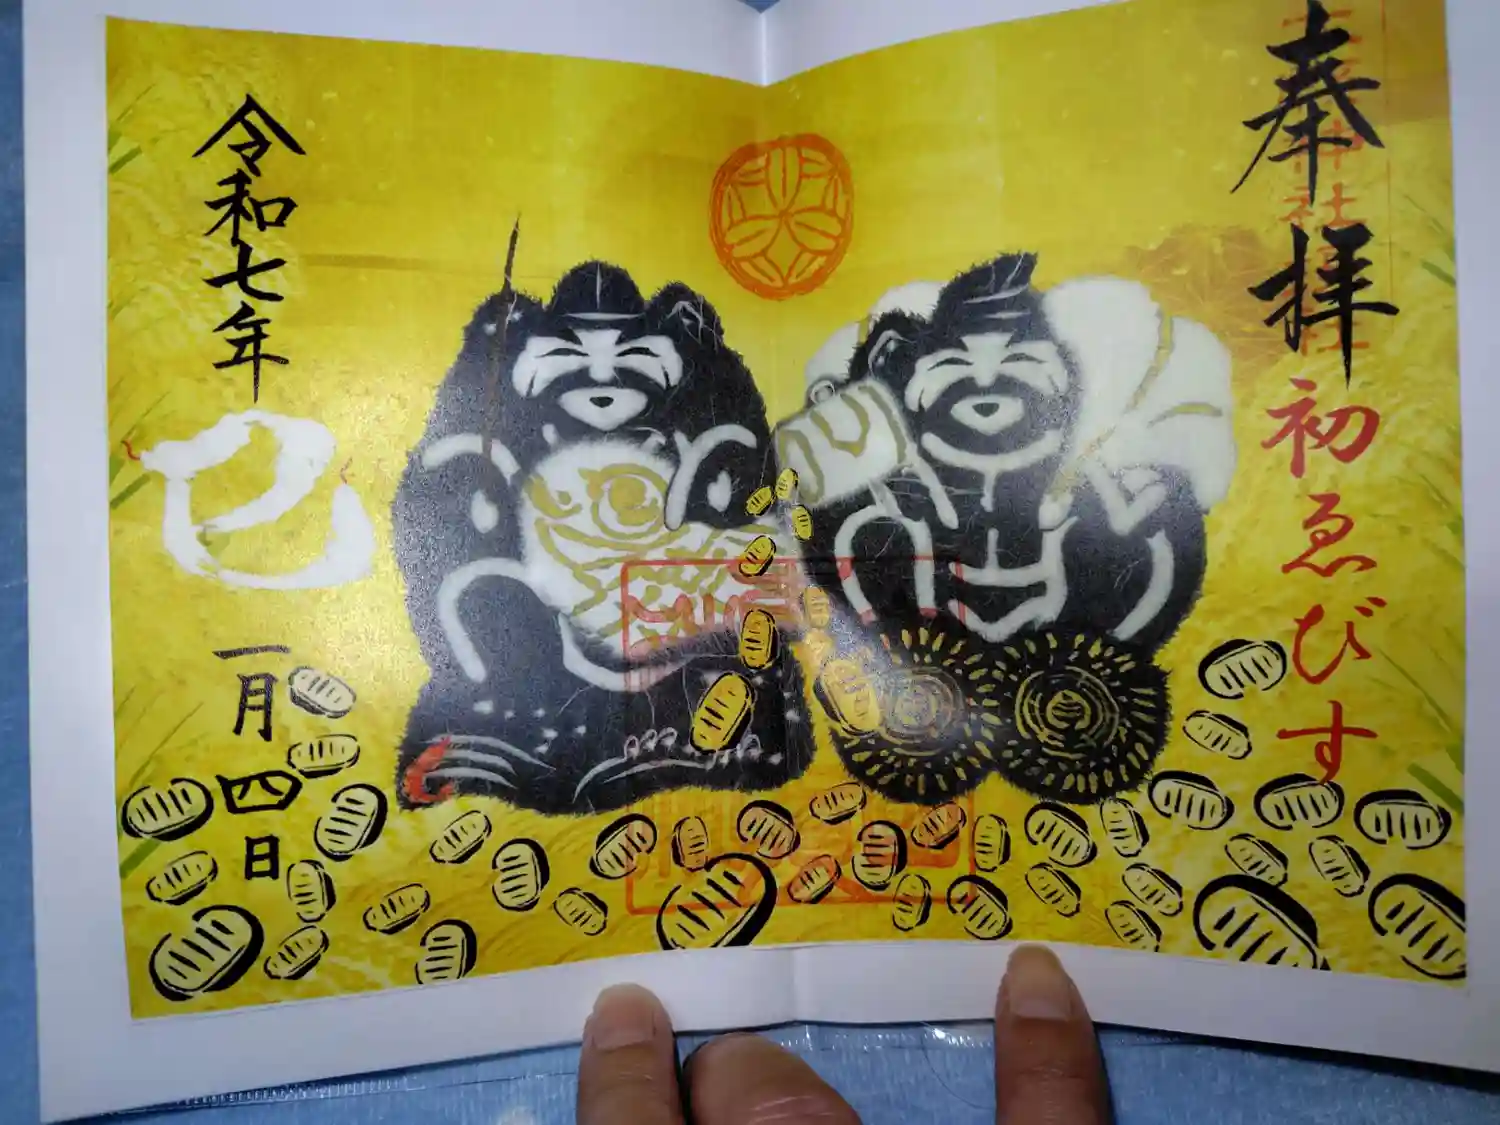 奉拝
初ゑびす
令和七年
巳
一月四日